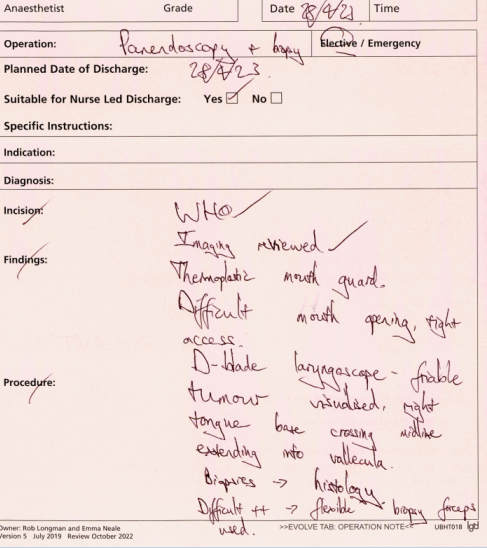 Anaesthetist Grade Date 28/4/23 Time
Operation: Panendoscopy + biopsy Elective / Emergency
Planned Date of Discharge: 28/4/23.
Suitable for Nurse Led Discharge: Yes ☑ No ☐
Specific Instructions:
Indication:
Diagnosis:
Incision: WHO ✓
Imaging reviewed ✓
Findings: Thermoplastic mouth guard.
Difficult mouth opening, tight
access.
D-blade laryngoscope - friable
Procedure: tumour visualised, right
tongue base crossing midline
extending into vallecula.
Biopsies → histology
Difficult ++ → flexible biopsy forceps
used.
Owner: Rob Longman and Emma Neale >>EVOLVE TAB: OPERATION NOTE<< UBHT018 lgd
Version 5 July 2019 Review October 2022